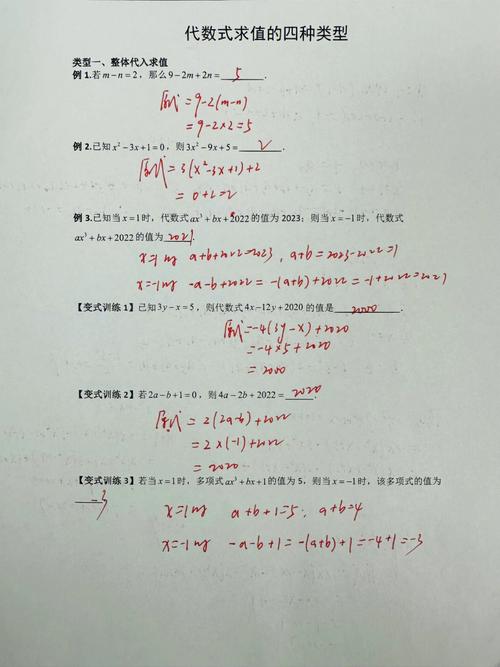 代数式求值的四种类型
类型一、整体代入求值
例 1.若 m−n=2，那么 9−2m+2n= 5 .
原式 =9−2(m−n)
=9−2×2=5
例 2.已知 x²−3x+1=0，则 3x²−9x+5= 2 .
原式 =3(x²−3x+1)+2
=0+2=2
例 3.已知当 x=1 时，代数式 ax³+bx+2022 的值为 2023；则当 x=−1 时，代数式
ax³+bx+2022 的值为 2021.
x=1时 a+b+2022=2023，a+b=2023−2022=1
x=−1时 −a−b+2022=−(a+b)+2022=−1+2022=2021
【变式训练 1】已知 3y−x=5，则代数式 4x−12y+2020 的值是 2000 .
原式=−4(3y−x)+2020
=−4×5+2020
=2000
【变式训练 2】若 2a−b+1=0，则 4a−2b+2022= 2020 .
原式 =2(2a−b)+2022
=2×(−1)+2022
=2020
【变式训练 3】若当 x=1 时，多项式 ax³+bx+1 的值为 5，则当 x=−1 时，该多项式的值为
−3
x=1时 a+b+1=5；a+b=4
x=−1时 −a−b+1=−(a+b)+1=−4+1=−3